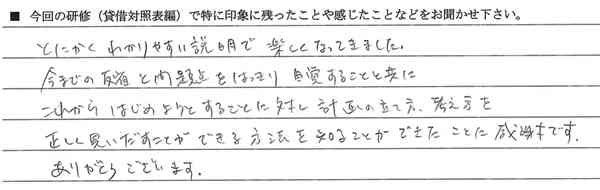 ■ 今回の研修（貸借対照表編）で特に印象に残ったことや感じたことなどをお聞かせ下さい。
とにかくわかりやすい説明で楽しくなってきました。
今までの反省と問題点をはっきり自覚することと共に
これからはじめようとすることに対し計画の立て方、考え方を
正しく見いだすことができる方法を知ることができたことに感謝です。
ありがとうございます。